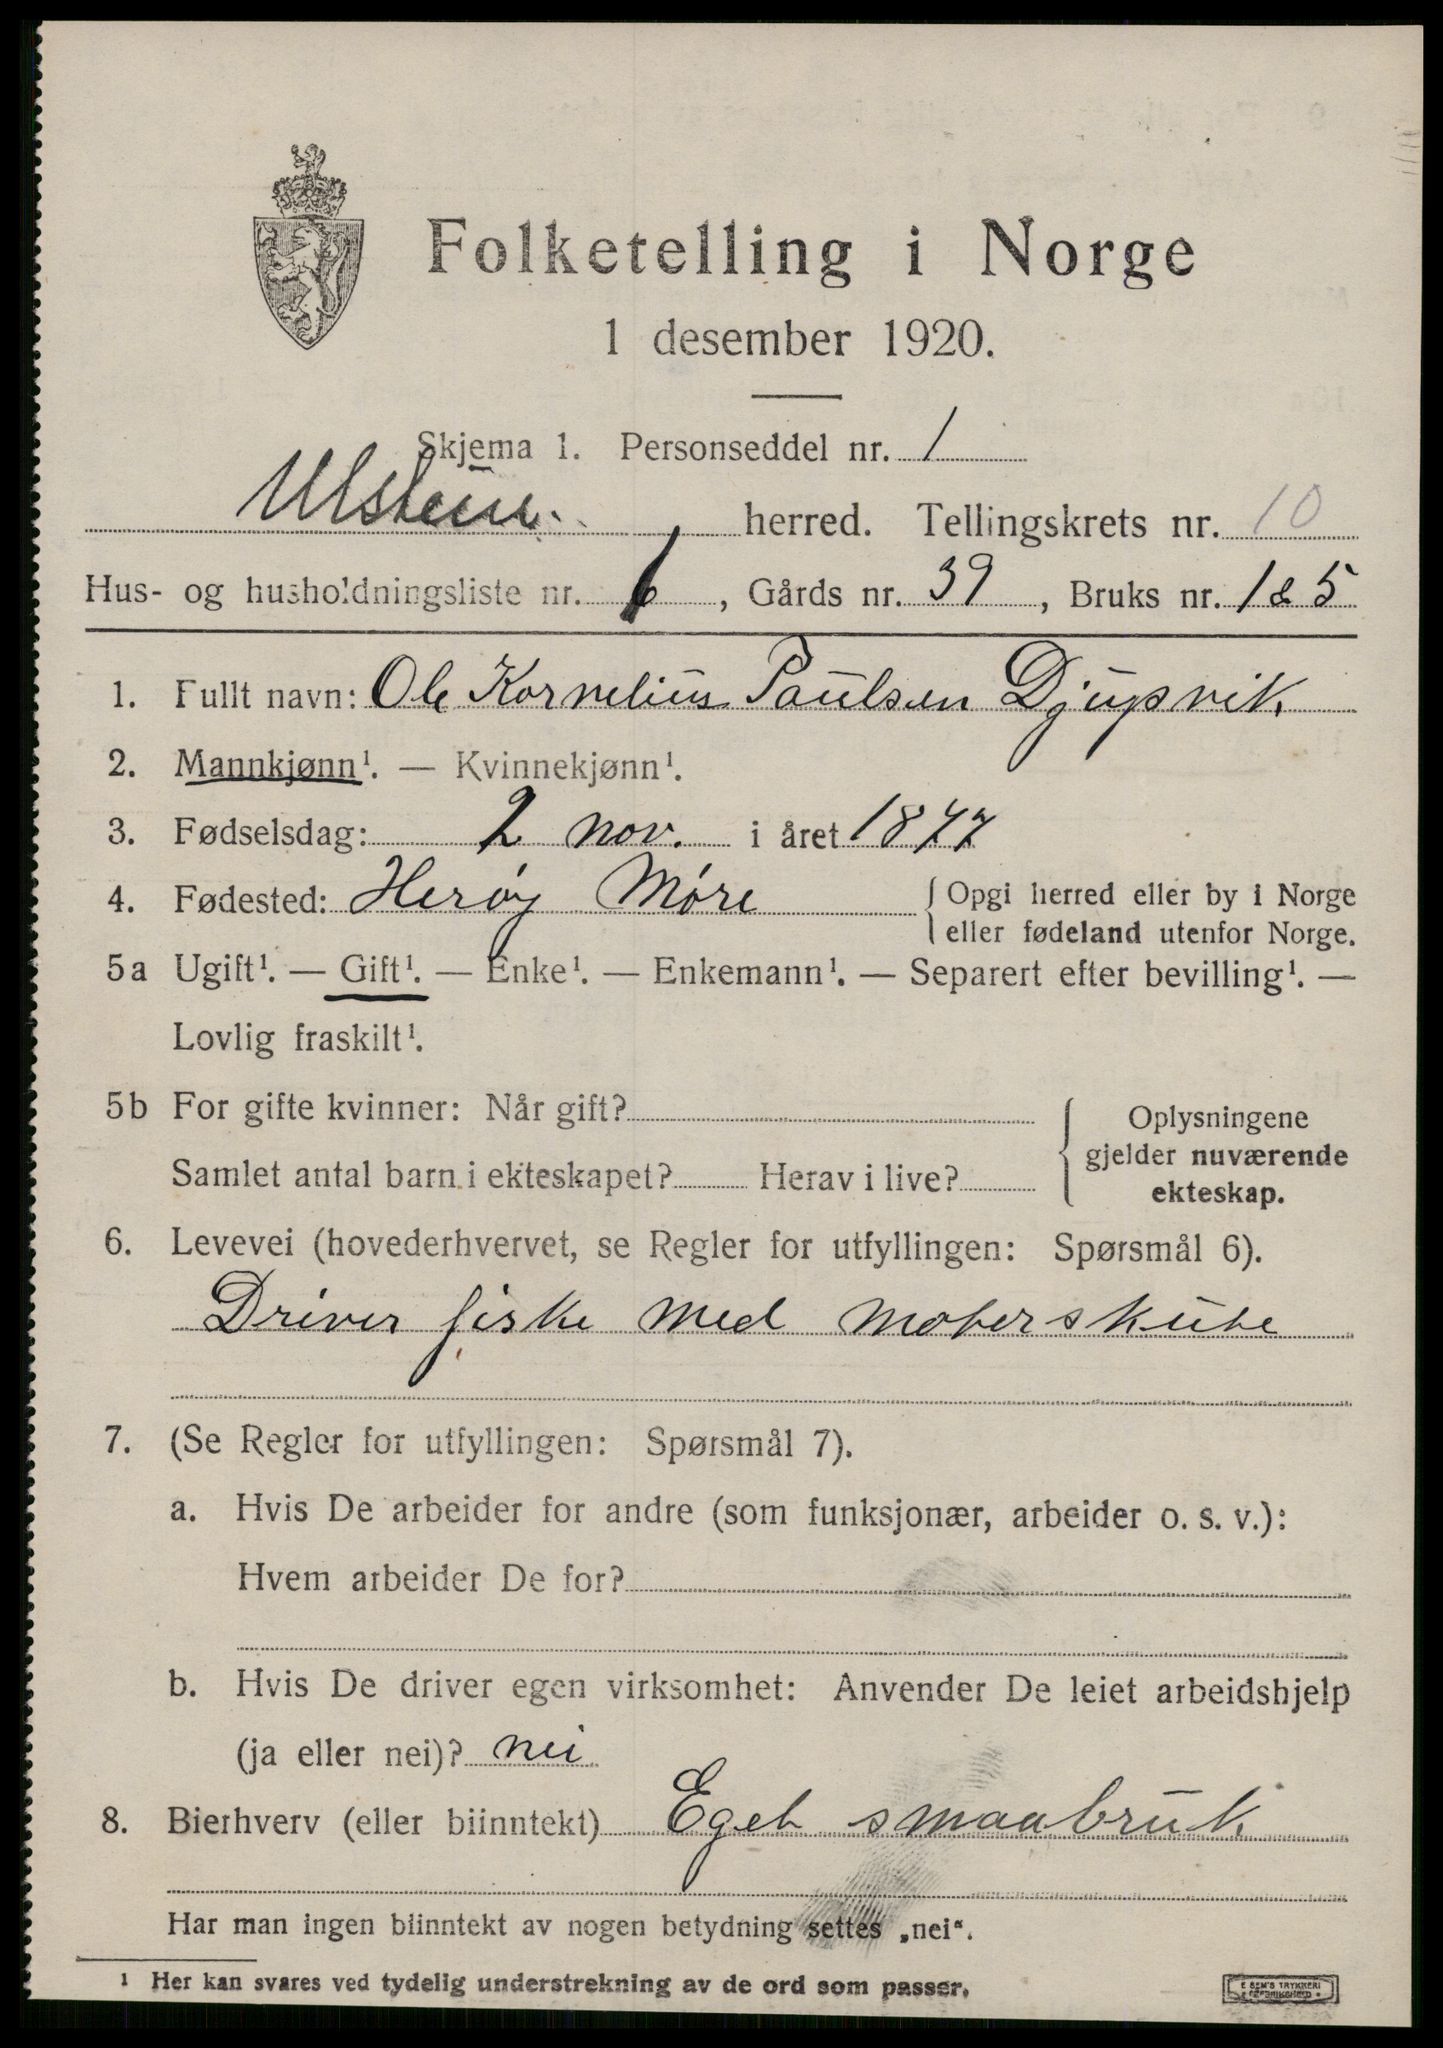 Folketelling i Norge
1 desember 1920.
Skjema 1. Personseddel nr. 1
Ulstein herred. Tellingskrets nr. 10
Hus- og husholdningsliste nr. 6, Gårds nr. 39, Bruks nr. 1 & 5
1. Fullt navn: Ole Kornelius Paulsen Djupvik
2. Mannkjønn¹. — Kvinnekjønn¹.
3. Fødselsdag: 2 nov. i året 1877
4. Fødested: Herøy Møre { Opgi herred eller by i Norge
eller fødeland utenfor Norge.
5a Ugift¹. — Gift¹. — Enke¹. — Enkemann¹. — Separert efter bevilling¹. —
Lovlig fraskilt¹.
5b For gifte kvinner: Når gift?
Samlet antal barn i ekteskapet? Herav i live?
Oplysningene
gjelder nuværende
ekteskap.
6. Levevei (hovederhvervet, se Regler for utfyllingen: Spørsmål 6).
Driver fiske med moterskute
7. (Se Regler for utfyllingen: Spørsmål 7).
a. Hvis De arbeider for andre (som funksjonær, arbeider o. s. v.):
Hvem arbeider De for?
b. Hvis De driver egen virksomhet: Anvender De leiet arbeidshjelp
(ja eller nei)? nei
8. Bierhverv (eller biinntekt) Eget smaabruk
Har man ingen biinntekt av nogen betydning settes „nei“.
¹ Her kan svares ved tydelig understrekning av de ord som passer.